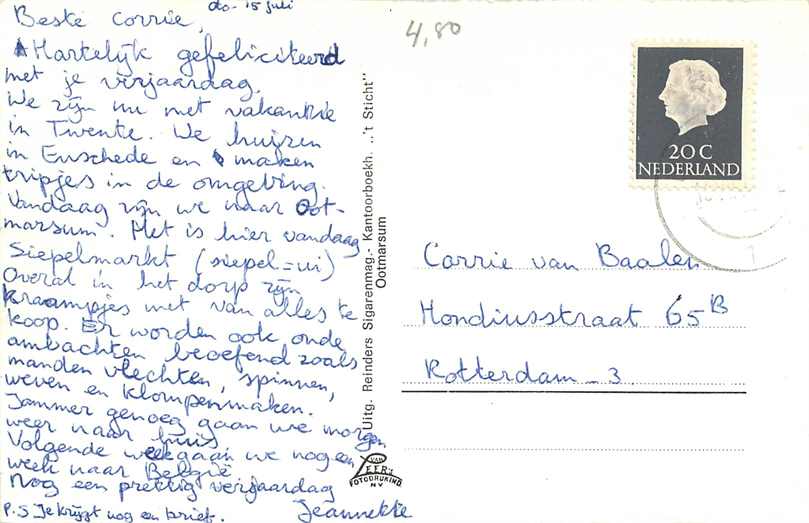 do- 15 juli
Beste Corrie,
Hartelijk gefeliciteerd
met je verjaardag.
We zijn nu met vakantie
in Twente. We huizen
in Enschede en maken
tripjes in de omgeving.
Vandaag zijn we naar Oot-
marsum. Het is hier vandaag
Siepelmarkt (siepel=ui)
Overal in het dorp zijn
kraampjes met van alles te
koop. Er worden ook oude
ambachten beoefend zoals
manden vlechten, spinnen,
weven en klompenmaken.
Jammer genoeg gaan we morgen
weer naar huis
Volgende week gaan we nog een
week naar België
Nog een prettig verjaardag
Jeannette
P.S Je krijgt nog en brief.
Uitg. Reinders Sigarenmag.- Kantoorboekh. ,,'t Sticht"
Ootmarsum
VAN
LEER'S
FOTODRUKIND
N V
4,80
20 C
NEDERLAND
Corrie van Baalen
Hondiusstraat 65B
Rotterdam - 3